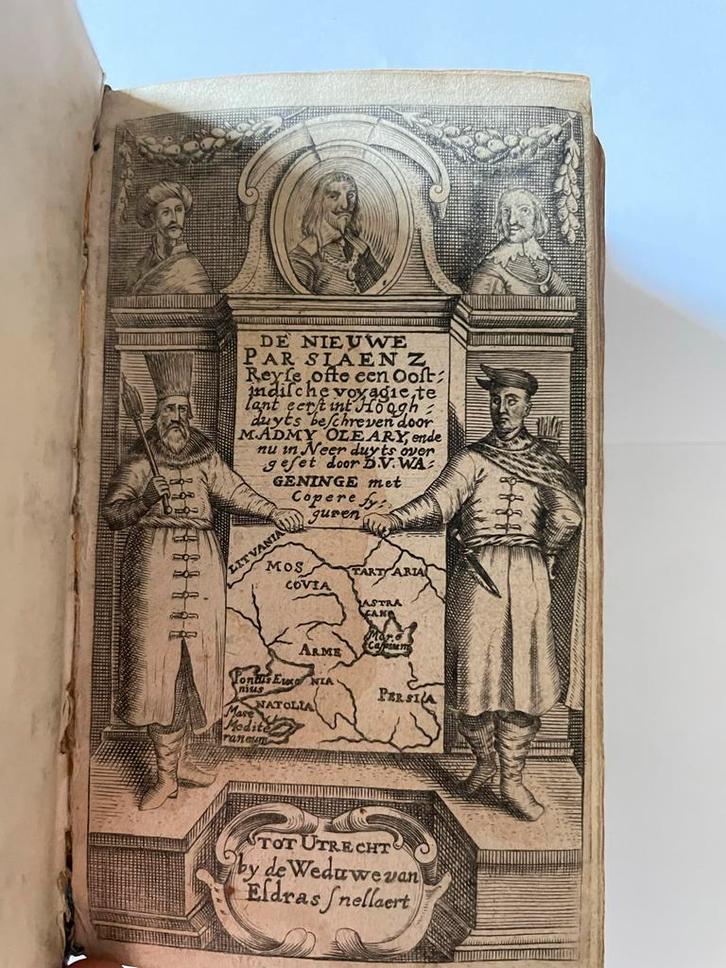 DE NIEUWE
PARSIAENZ
Reyſe, ofte een Ooſt⸗
indiſche voyagie, te
lant eerſt int Hoogh⸗
duyts beſchreven door
M. ADMY OLEARY, ende
nu in Neerduyts over
geſet door D. V. WA⸗
GENINGE met
Copere fy⸗
guren
LITVANIA
MOS
COVIA
TARTARIA
ASTRA
CANE
Mare
Caſpium
ARME
NIA
Pontus Euxi
nius
PERSIA
NATOLIA
Mare
Medite
raneum
TOT UTRECHT
by de Weduwe van
Eſdras ſnellaert